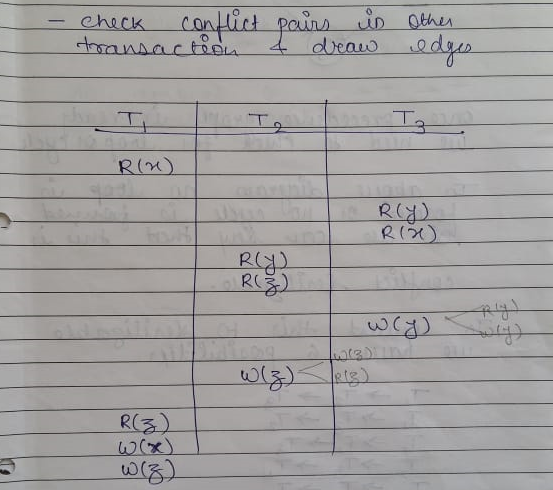 - check conflict pairs in other
transaction & draw edges
T1 T2 T3
R(x)
R(y)
R(x)
R(y)
R(z)
W(y) R(y)
W(y)
W(z) W(z)
R(z)
R(z)
W(x)
W(z)